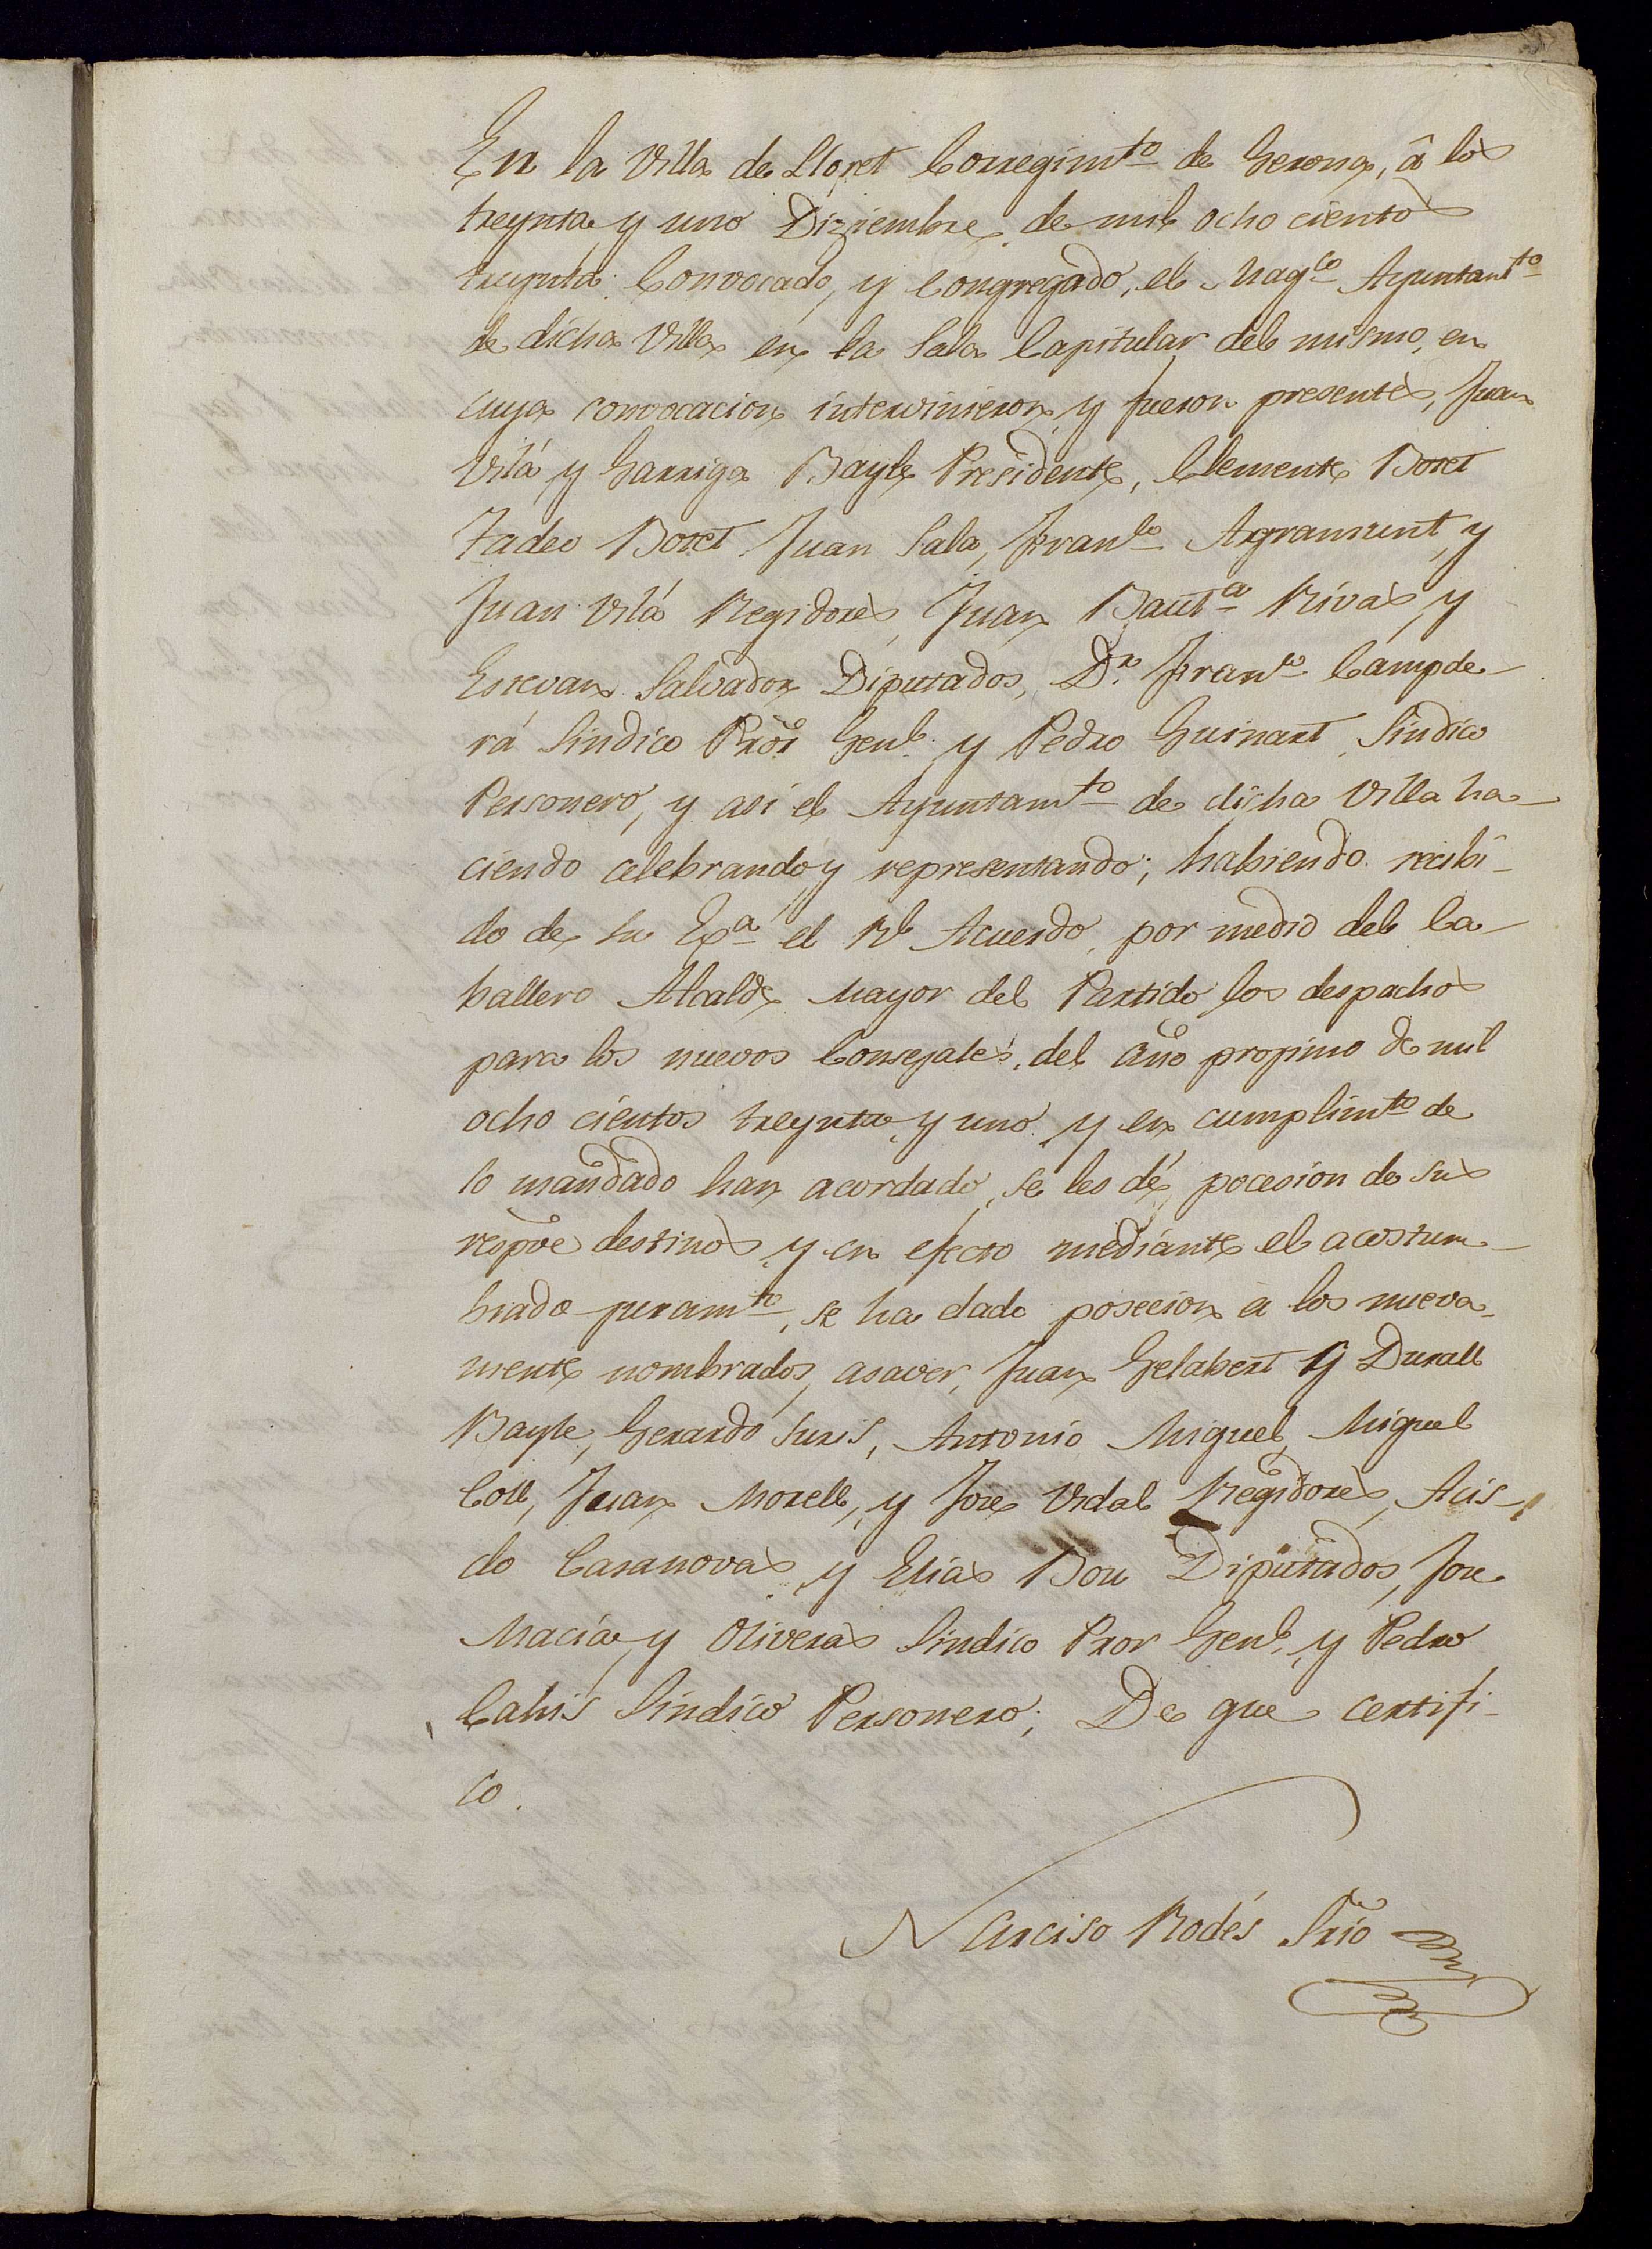 En la Villa de Lloret Corregimto de Gerona, â los
treynta y uno Diziembre de mil ocho cientos
treynta: Convocado, y Congregado, el Magco Ayuntamto
de dicha Villa en la Sala Capitular del mismo, en
cuya convocacion intervinieron y fueron presentes, Juan
Vilá y Garriga Bayle Presidente, Clemente Botet
Tadeo Botet Juan Sala, Franco Agramunt, y
Juan Vilá Regidores, Juan Bauta Rivas, y
Estevan Salvador Diputados, Dn Franco Campde-
rá Sindico Pror Genl y Pedro Guinart Sindico
Personero, y asi el Ayuntamto de dicha Villa ha-
ciendo celebrando y representando; habiendo recibi-
do de su Exa el Rl Acuerdo, por medio del Ca-
ballero Alcalde Mayor del Partido los despachos
para los nuevos Consejales, del año proximo de mil
ocho cientos treynta y uno y en cumplimto de
lo mandado han acordado, se les dé pocesion de sus
respve destinos y en efecto mediante el acostum-
brado juramto, se ha dado posecion a los nueva-
mente nombrados, asaver, Juan Gelabert y Durall
Bayle, Gerardo Suris, Antonio Miguel, Miguel
Coll, Juan Morell, y Jose Vidal Regidores, Acis-
clo Casanovas y Elias Bou Diputados, Jose
Maciá y Oliveras Sindico Pror Genl y Pedro
Cabis Sindico Personero; De que certifi-
co.
Narciso Rodés Srio